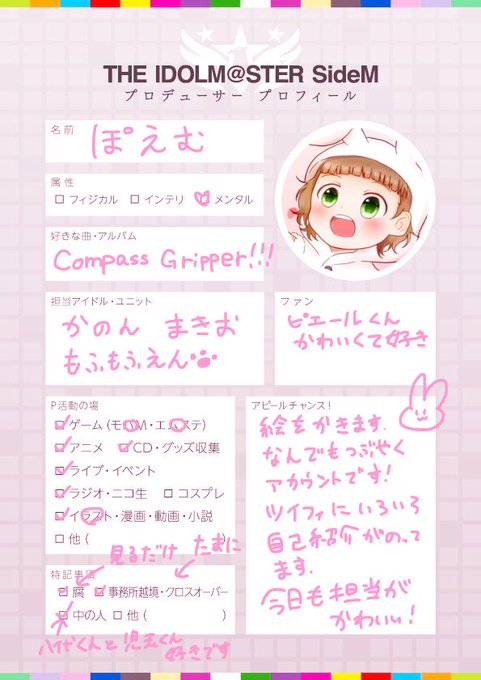 THE IDOLM@STER SideM
プロデューサー プロフィール
名前
ぽえむ
属性
フィジカル インテリ メンタル
好きな曲・アルバム
Compass Gripper!!!
担当アイドル・ユニット
かのん まきお
もふもふえん
ファン
ピエールくん
かわいくて好き
P活動の場
ゲーム(モバM・エムステ)
アニメ CD・グッズ収集
ライブ・イベント
ラジオ・ニコ生 コスプレ
イラスト・漫画・動画・小説
他(
見るだけ たまに
特記事項
腐 事務所越境・クロスオーバー
中の人 他( )
八代くんと児玉くん
好きです
アピールチャンス!
絵をかきます.
なんでもつぶやく
アカウントです!
ツイフィにいろいろ
自己紹介がのって
ます.
今日も担当が
かわいい!